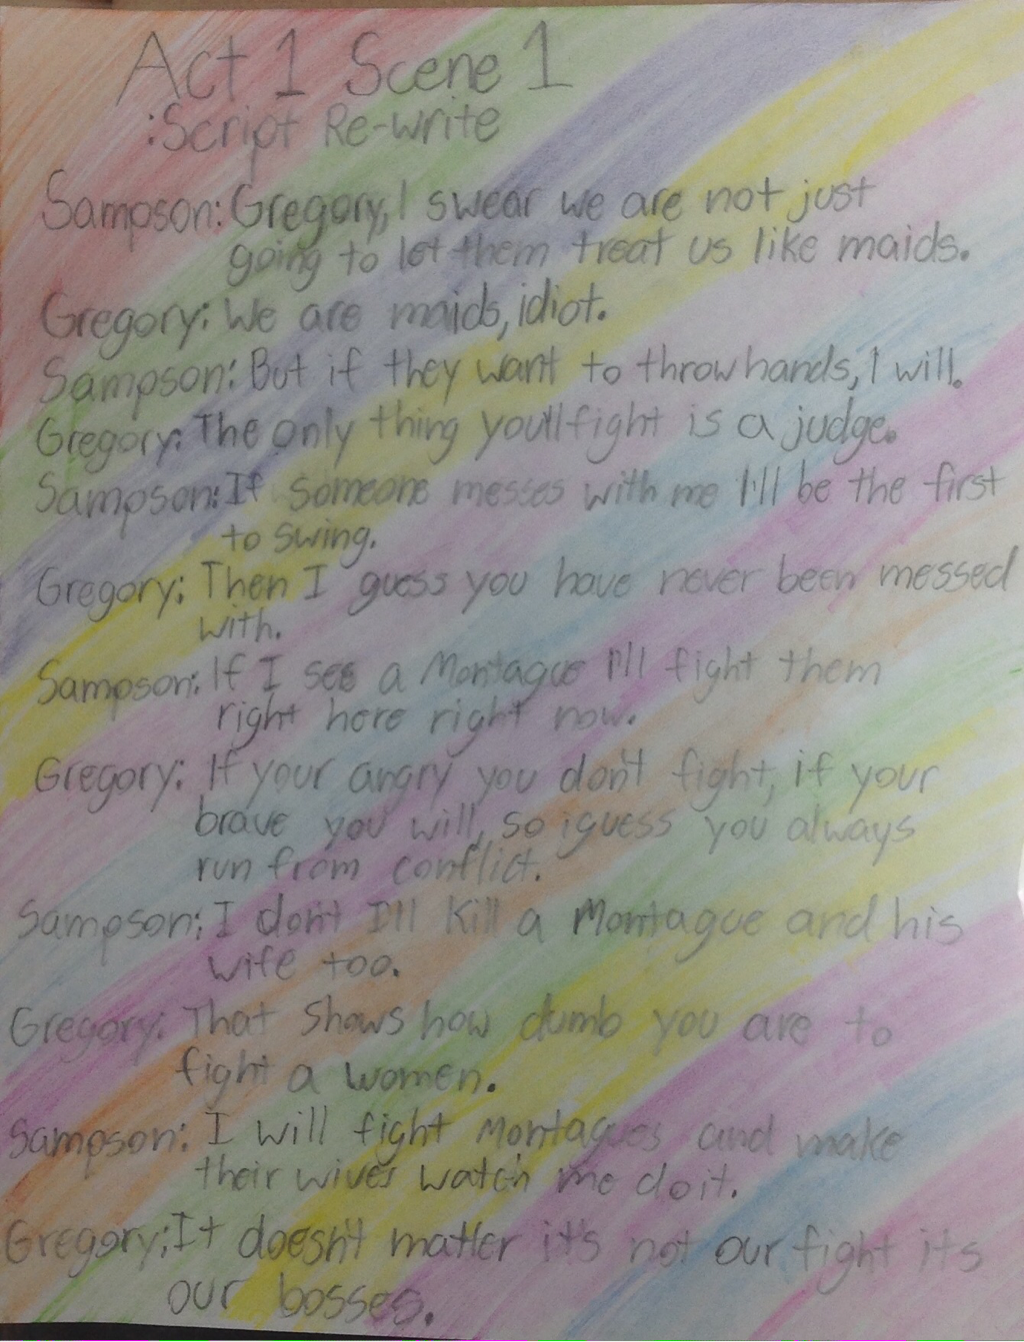 Act 1 Scene 1
:Script Re-write
Sampson: Gregory, I swear we are not just
going to let them treat us like maids.
Gregory: We are maids, idiot.
Sampson: But if they want to throw hands, I will.
Gregory: The only thing you'll fight is a judge.
Sampson: If someone messes with me I'll be the first
to swing.
Gregory: Then I guess you have never been messed
with.
Sampson: If I see a Montague I'll fight them
right here right now.
Gregory: If your angry you don't fight, if your
brave you will, so i guess you always
run from conflict.
Sampson: I don't I'll Kill a Montague and his
wife too.
Gregory: That shows how dumb you are to
fight a women.
Sampson: I will fight Montagues and make
their wives watch me do it.
Gregory: It doesn't matter it's not our fight its
our bosses.